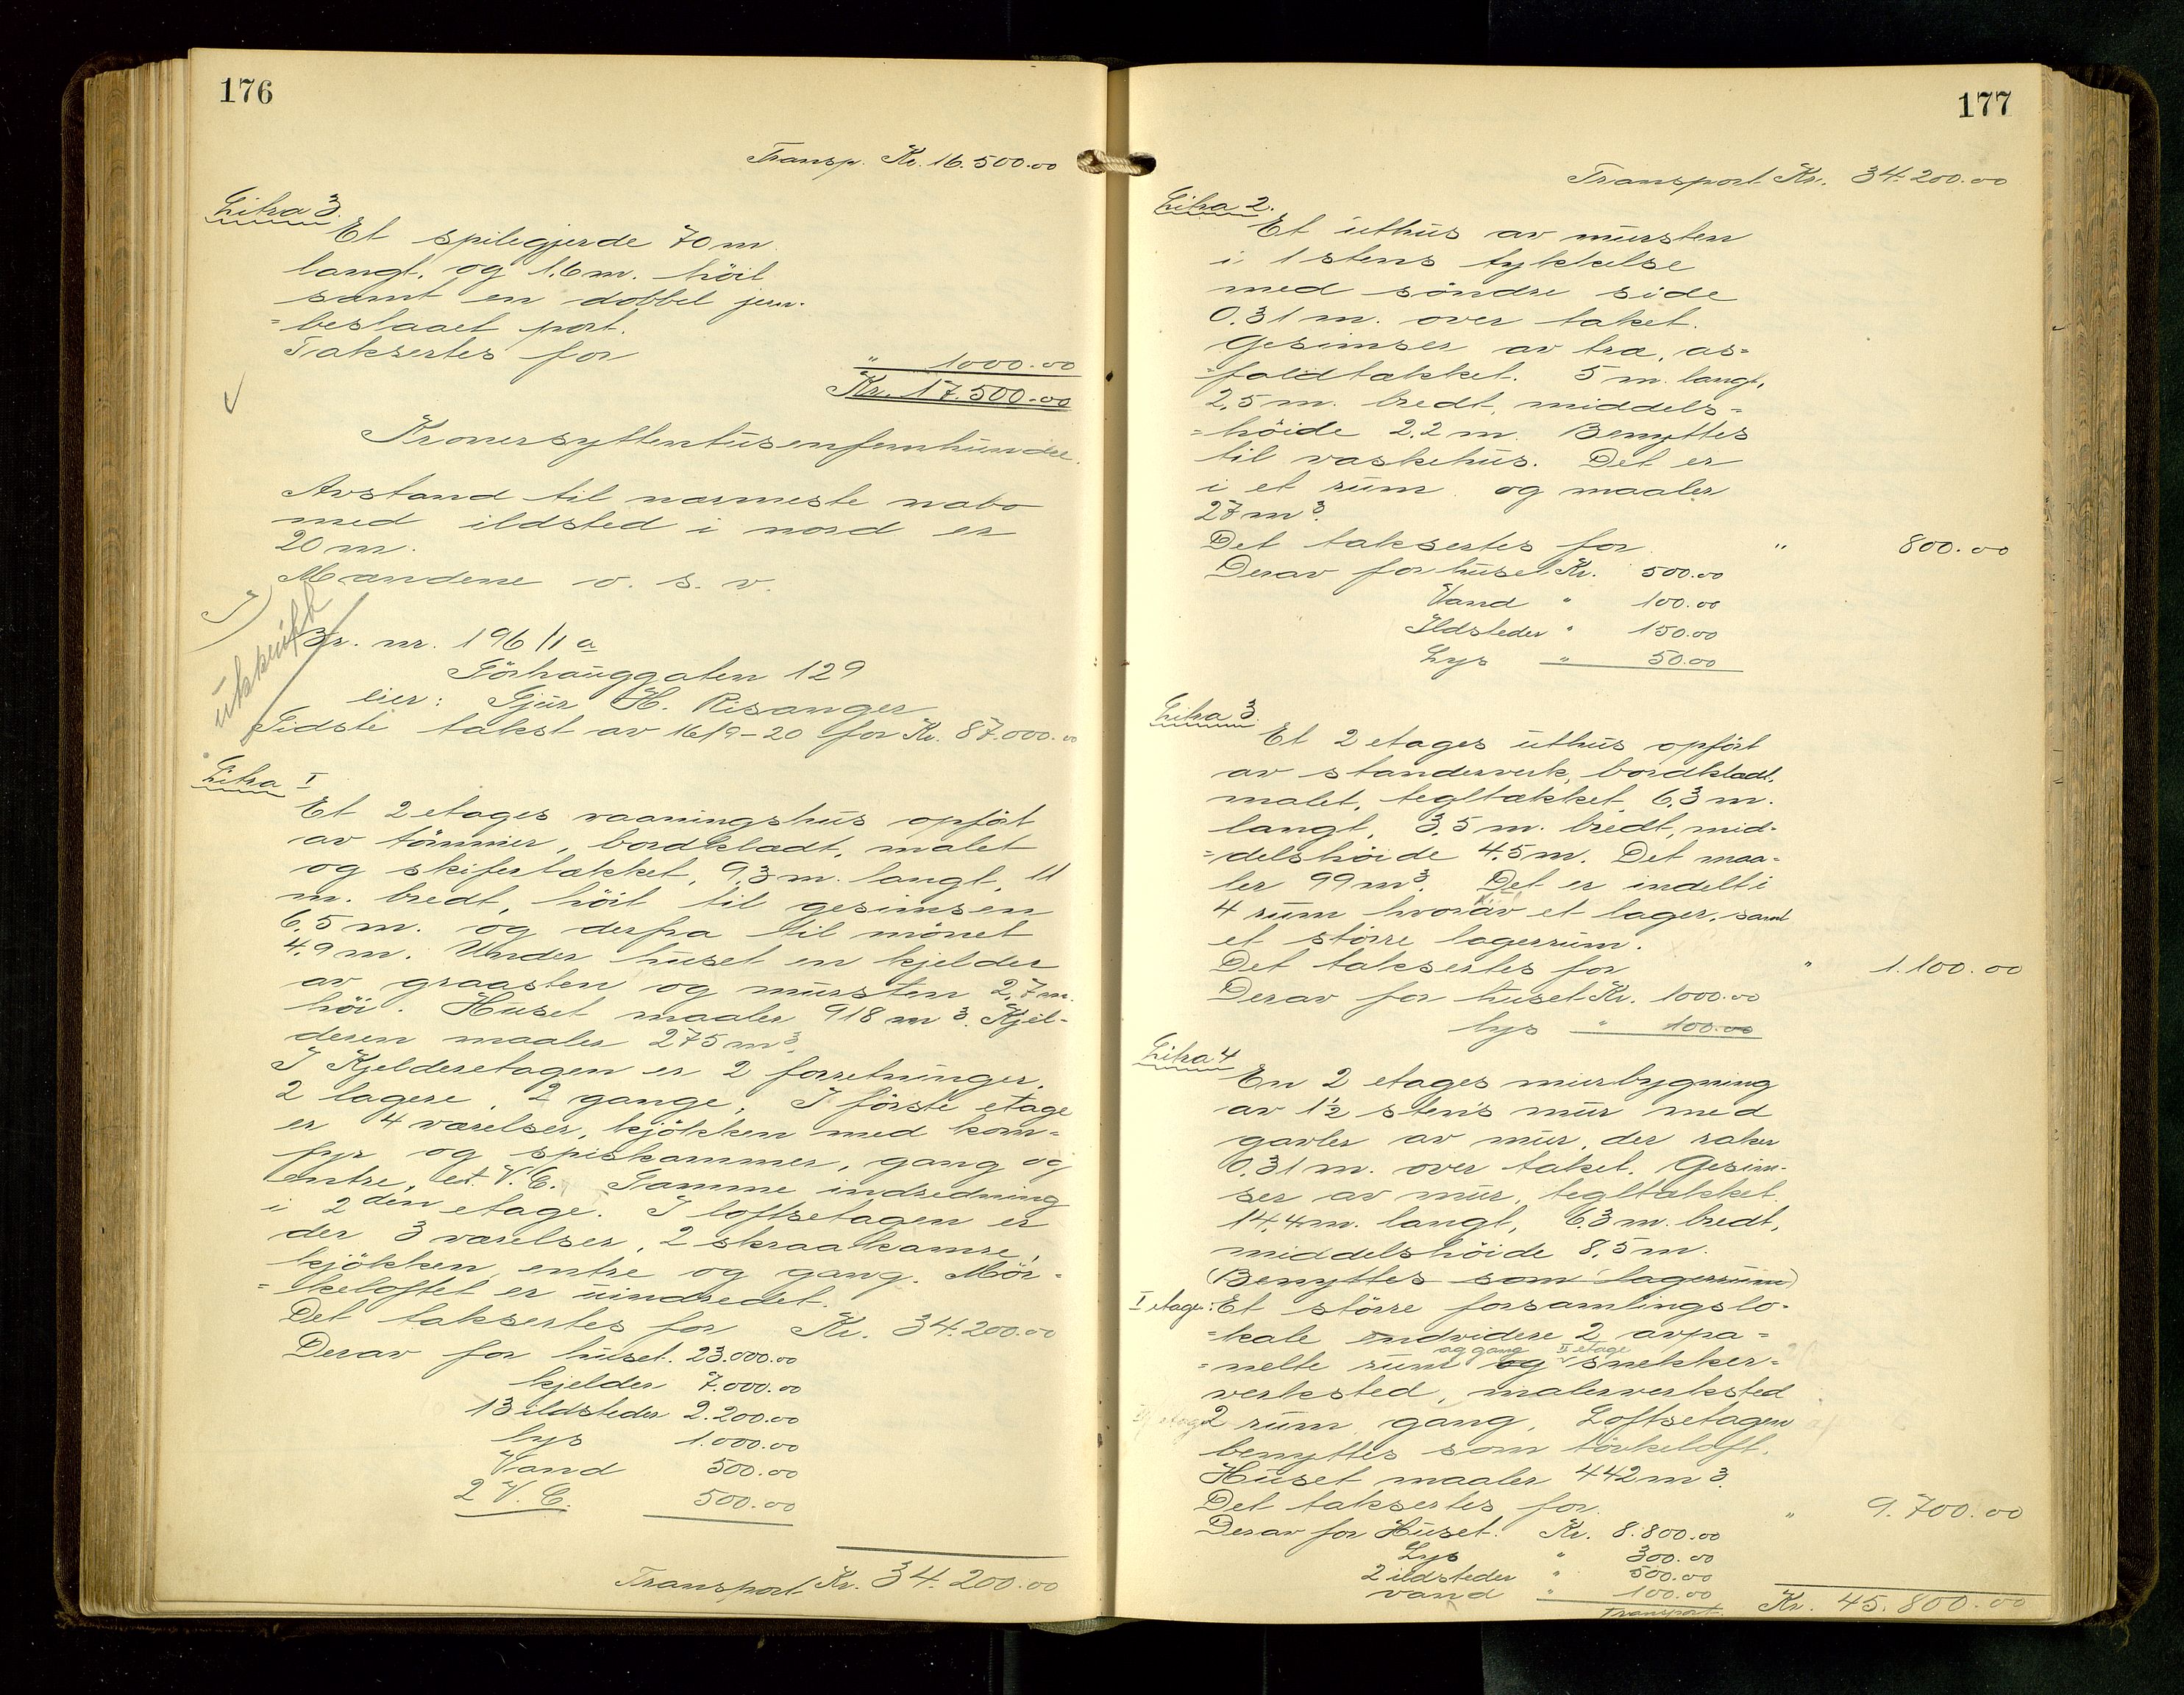 176
Transp. Kr. 16.500.00
Litra 3.
Et spilegjerde 70 m.
langt. og 1.6 m. höit
samt en dobbel jern-
=beslaaet port.
Taksertes for
" 1000.00
Kr. 17.500.00
Kronersyttentusenfemhundre.
Avstand til nærmeste nabo
med ildsted i nord er
20 m.
Mændene o. s. v.
J)
utskrift
Br. nr. 196/1 a
Förhauggaten 129
eier: Gjür H. Risanger
Sidste takst av 16/9-20 for Kr. 87.000.00
Litra I
Et 2 etages vaaningshüs opföt
av tömmer, bordklædt, malet
og skifertækket, 9,3 m. langt, 11
m. bredt, höit til gesimsen
6,5 m. og derfra til mönet
4,9 m. Under hüset en kjelder
av graasten og mürsten 2,7 m.
höi. Hüset maaler 918 m3. Kjel-
deren maaler 275 m3.
I Kjelderetagen er 2 forretninger,
2 lagere, 2 gange, I förste etage
er 4 værelser, kjökken med kom-
fyr og spiskammer, gang og
entre, et V. C. Samme indredning
i 2den etage. I loftsetagen er
der 3 værelser, 2 skraakamre,
kjökken, entre og gang. Mör-
=keloftet er üindredet.
Det taksertes for Kr. 34.200.00
Derav for hüset. 23.000.00
kjelder 7.000.00
13 ildsteder 2.200.00
lys 1.000.00
Vand 500.00
2 V. C. 500.00
Transport Kr. 34.200.00
177
Transport Kr. 34.200.00
Litra 2.
Et üthüs av mürsten
i 1 stens tykkelse
med söndre side
0.31 m. over taket.
Gesimser av træ, as=
=faldtækket. 5 m. langt,
2,5 m. bredt, middels=
=höide 2,2 m. Benyttes
til vaskehüs. Det er
i et rüm og maaler
27 m3.
Det taksertes for " 800.00
Derav for hüset Kr. 500.00
Vand " 100.00
Ildsteder " 150.00
Lys " 50.00
Litra 3.
Et 2 etages üthüs opfört
av standerverk, bordklædt,
malet, tegltækket, 6,3 m.
langt, 3,5 m. bredt, mid-
=delshöide 4,5 m. Det maa-
ler 99 m3. Det er indelt i
4 rüm hvorav et lager, samt
et större lagerrüm.
Det taksertes for " 1.100.00
Derav for hüset Kr. 1000.00
lys " 100.00
Litra 4
En 2 etages mürbygning
av 1½ stens mür med
gavler av mür, der raker
0,31 m. over taket. Gesim-
ser av mür, tegltækket
14,4 m. langt, 6,3 m. bredt,
middelshöide 8,5 m.
(Benyttes som lagerrüm)
I etage: Et större forsamlingslo-
=kale endvidere 2 avpa=
og gang II etage
=nelte rüm og snekker=
verksted, malerverksted
2 rüm, gang, Loftsetagen
benyttes som törkeloft.
Hüset maaler 442 m3.
Det taksertes for " 9.700.00
Derav for Hüset. Kr. 8.800.00
Lys " 300.00
2 ildsteder " 500.00
vand " 100.00
Transport. Kr. 45.800.00